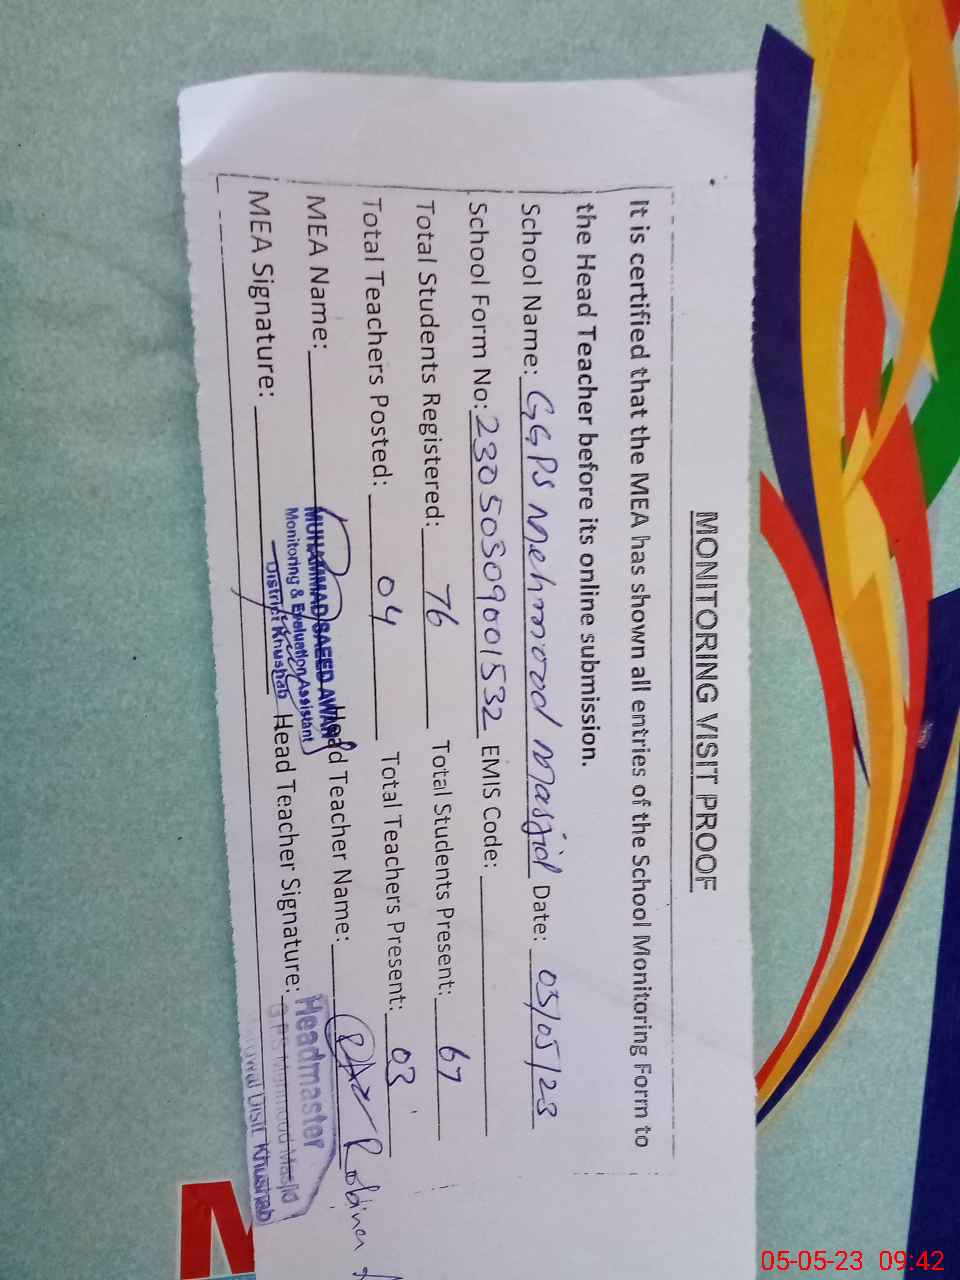 MONITORING VISIT PROOF
It is certified that the MEA has shown all entries of the School Monitoring Form to
the Head Teacher before its online submission.
School Name: GGPS Mehmood Masjid Date: 05/05/23
School Form No: 23050309001532 EMIS Code:
Total Students Registered: 76 Total Students Present: 67
Total Teachers Posted: 04 Total Teachers Present: 03
MEA Name: Head Teacher Name:
MEA Signature: Head Teacher Signature:
MUHAMMAD SAEED AWAN
Monitoring & Evaluation Assistant
District Khushab
Headmaster
G.P.S Mahmood Masjid
Distt. Khushab
M
05-05-23 09:42